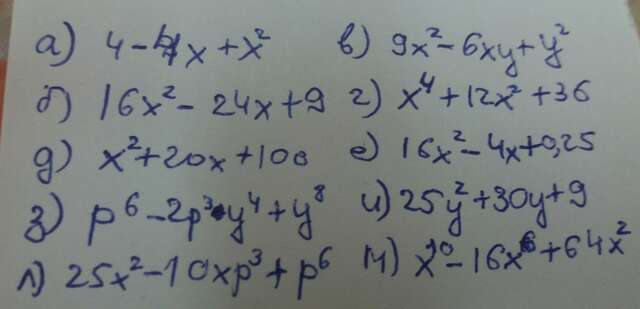 а) 4-4x+x² в) 9x²-6xy+y²
б) 16x²-24x+9 г) x⁴+12x²+36
д) x²+20x+100 е) 16x²-4x+0,25
з) p⁶-2p³y⁴+y⁸ и) 25y²+30y+9
л) 25x²-10xp³+p⁶ м) x¹⁰-16x⁶+64x²